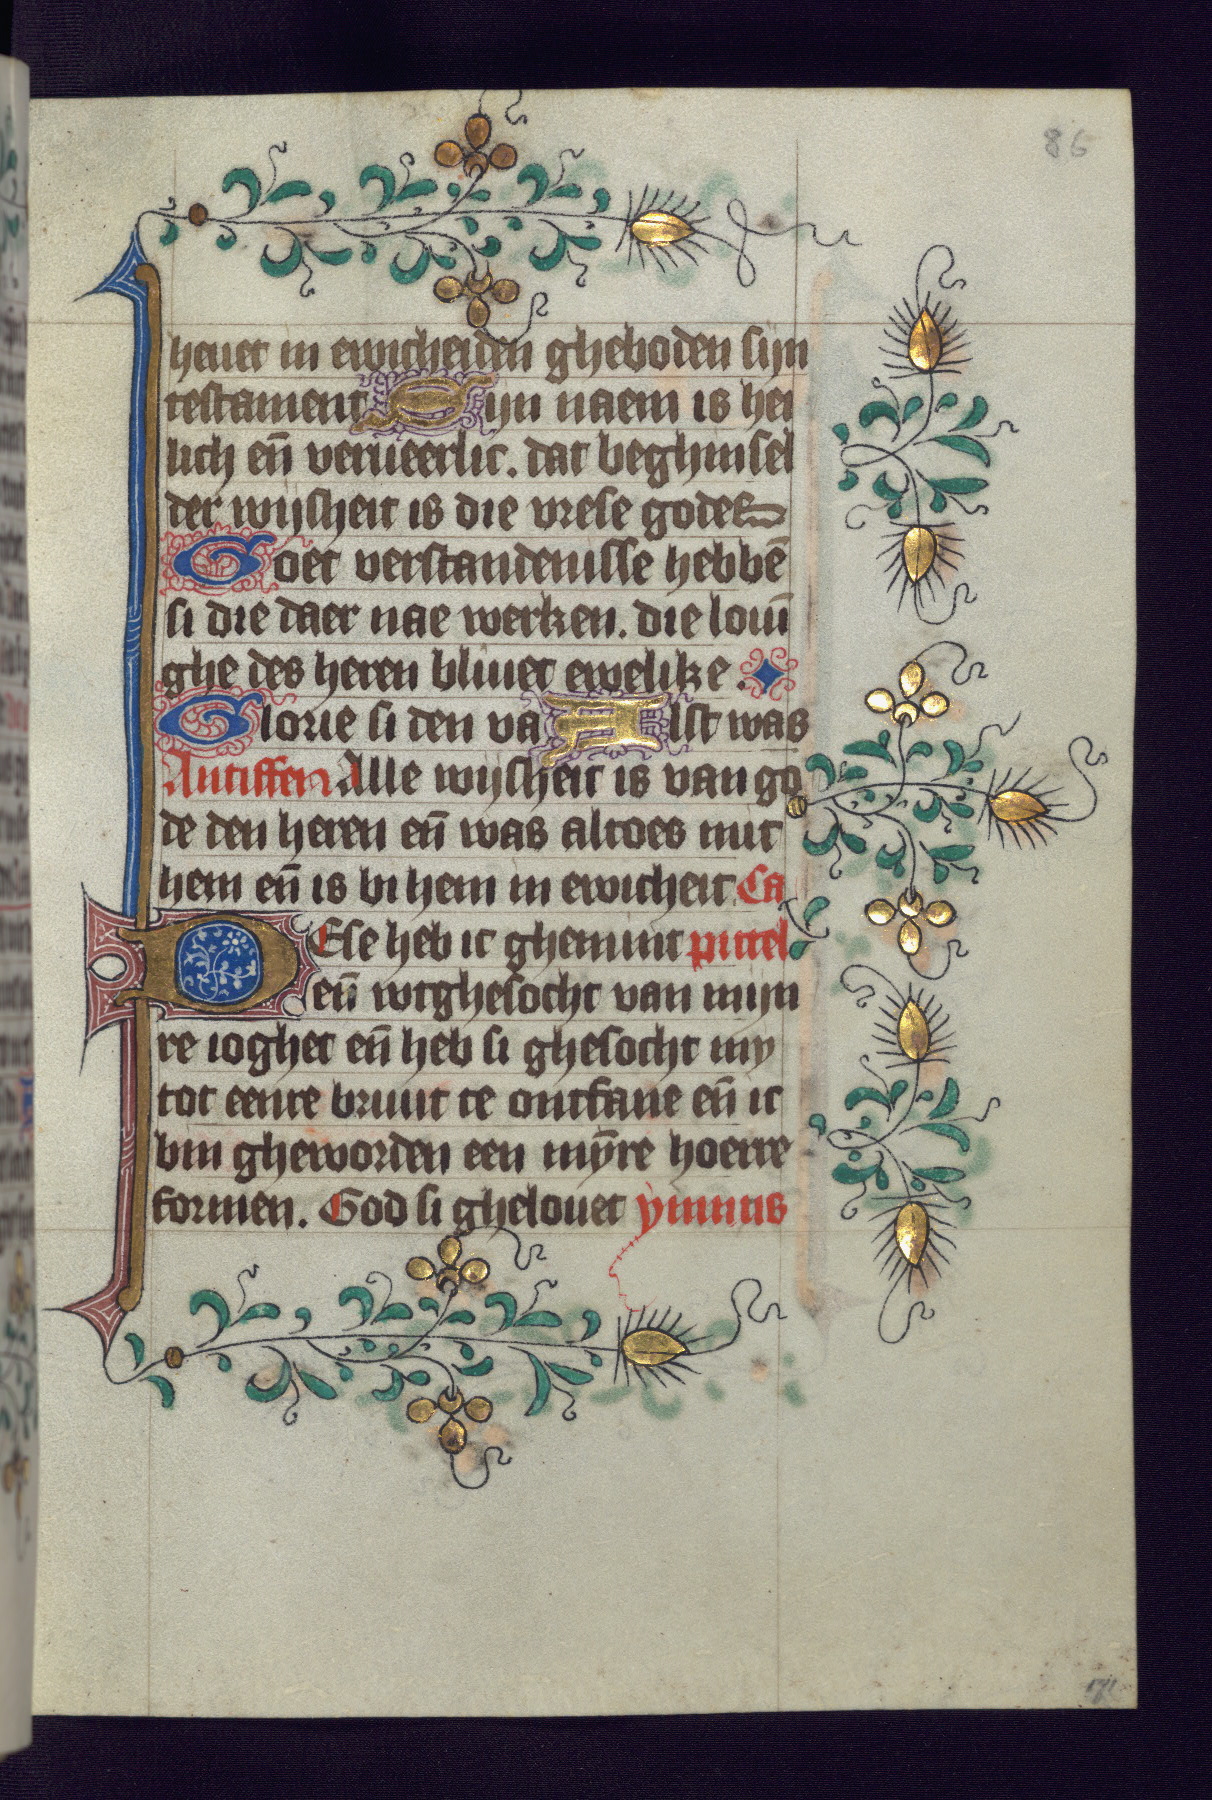 86
heuet in ewicheiden gheboden sijn
testament Sijn naem is hei
lich en̄ verueerlic. dat beghinsel
der wijsheit is die vrese godes
Goet verstandenisse hebbē
si die daer nae werken. die louī
ghe des heren bliuet ewelike.
Glorie si den va Alst was
Antiffen Alle wijsheit is van go
de den heren en̄ was altoes mit
hem en̄ is bi hem in ewicheit Ca
DEse heb ic ghemint pittel
en̄ wtghesocht van mijn
re ioghet en̄ heb si ghesocht my
tot eenre bruut te ontfane en̄ ic
bin gheworden een mȳre hoerre
formen. God si ghelouet ymnus